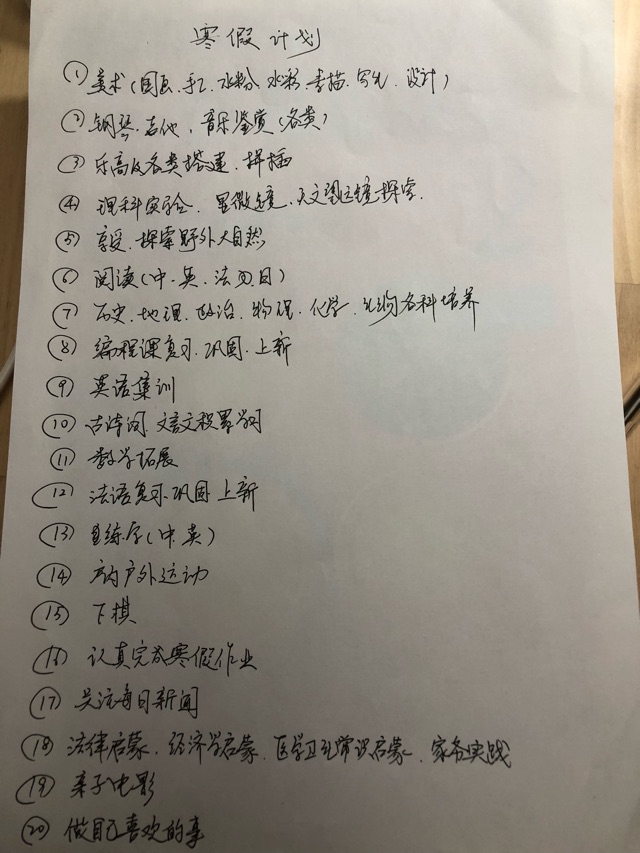 寒假计划
① 美术(国画、手工、水粉、水彩、素描、写生、设计)
② 钢琴、吉他、音乐鉴赏(各类)
③ 乐高及各类搭建、拼插
④ 理科实验、显微镜、天文望远镜探索.
⑤ 享受、探索野外大自然
⑥ 阅读(中、英、法、日)
⑦ 历史、地理、政治、物理、化学、生物各科培养
⑧ 编程课复习、巩固、上新
⑨ 英语集训
⑩ 古诗词、文言文积累学习
⑪ 数学拓展
⑫ 法语复习、巩固、上新
⑬ 练字(中、英)
⑭ 户内户外运动
⑮ 下棋
⑯ 认真完成寒假作业
⑰ 关注每日新闻
⑱ 法律启蒙、经济学启蒙、医学卫生常识启蒙、家务实战
⑲ 亲子电影
⑳ 做自己喜欢的事